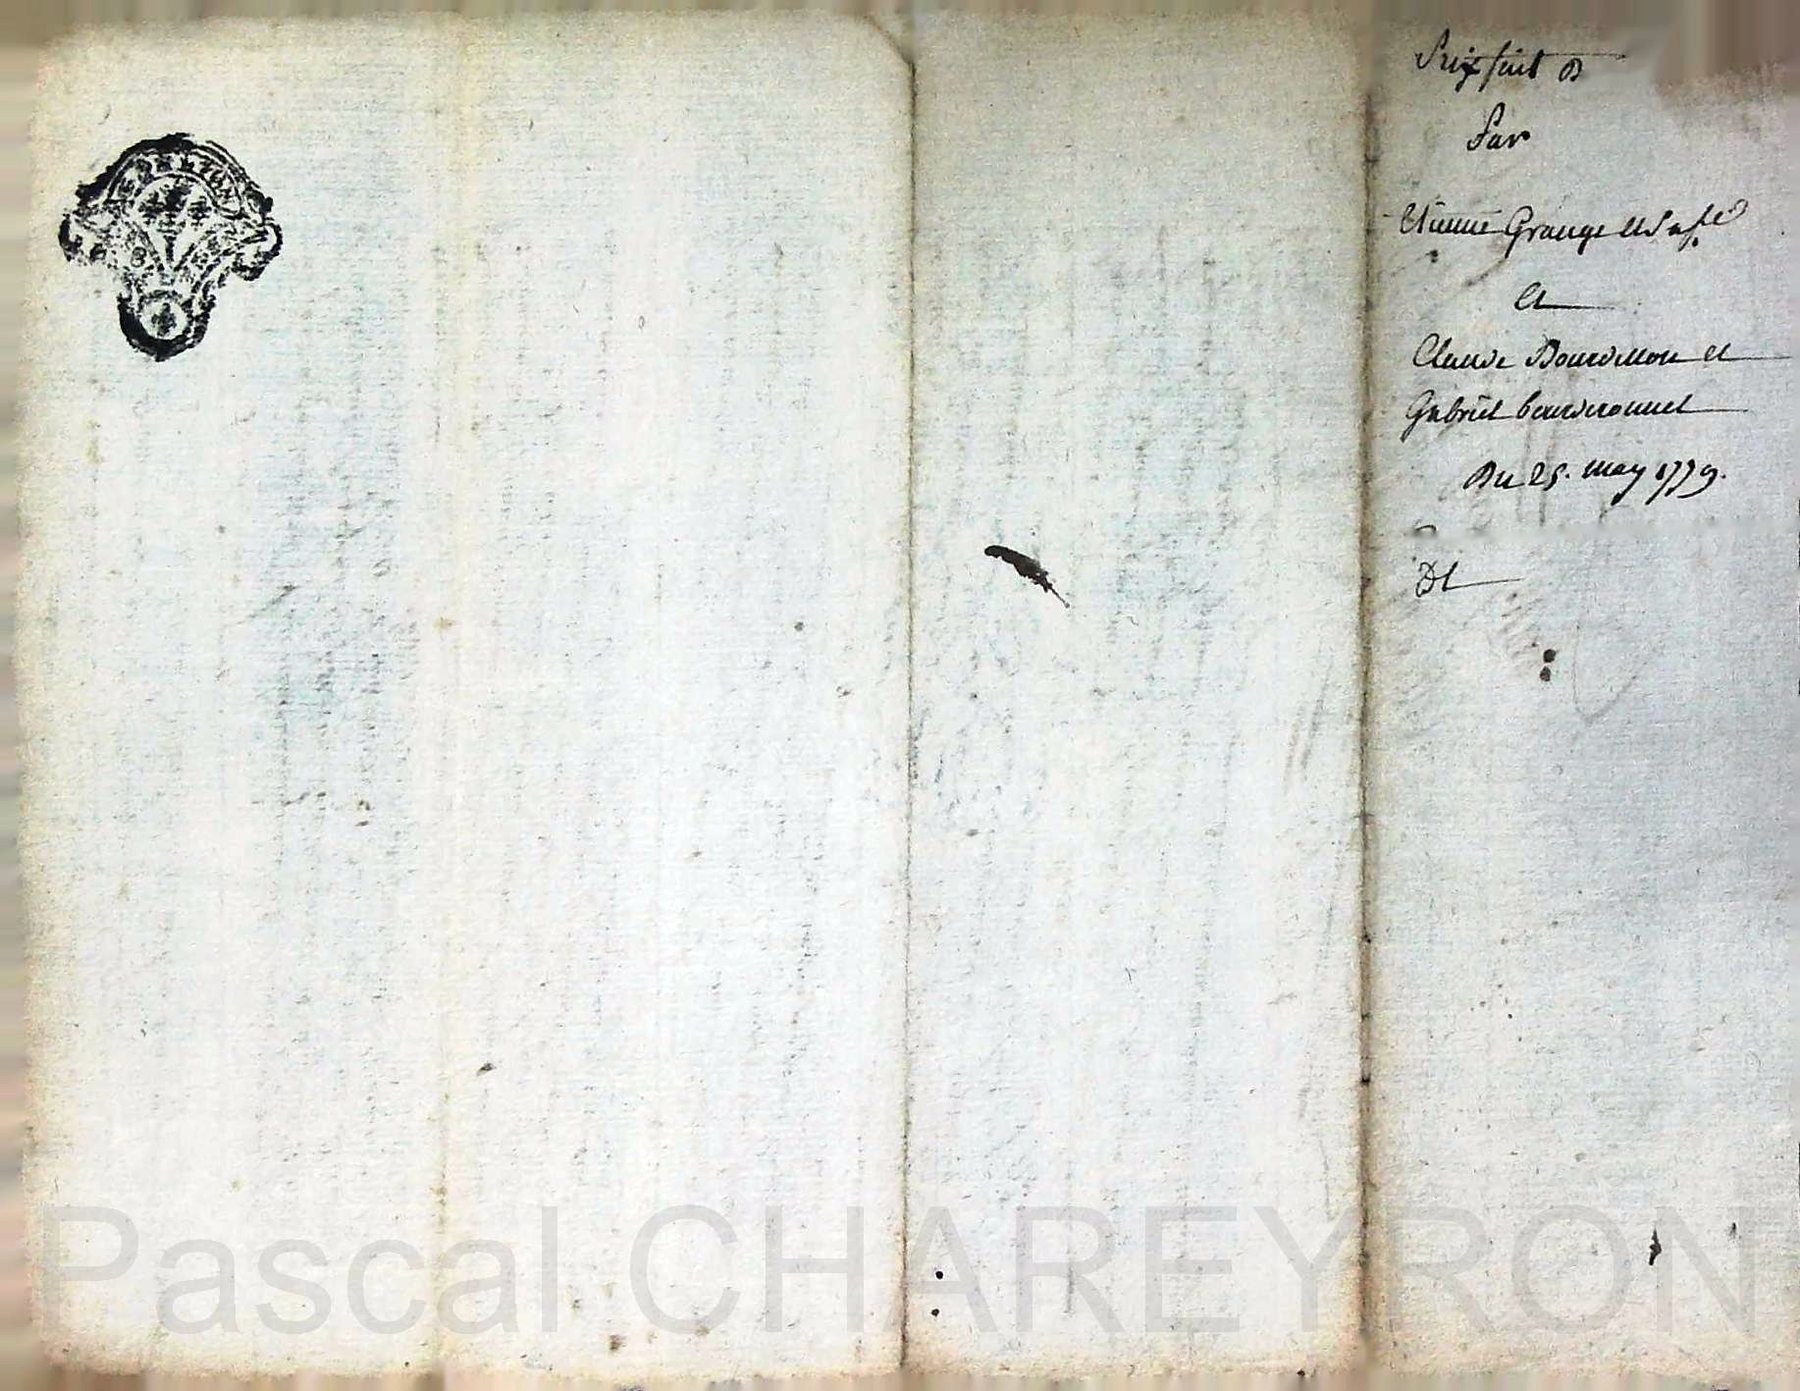 Prixfait D
Par
Etienne Grange et sa fe
Et
Claude Bourdillon et
Gabriel bourdionnet
Du 25. may 1779.
Dt
Pascal CHAREYRON